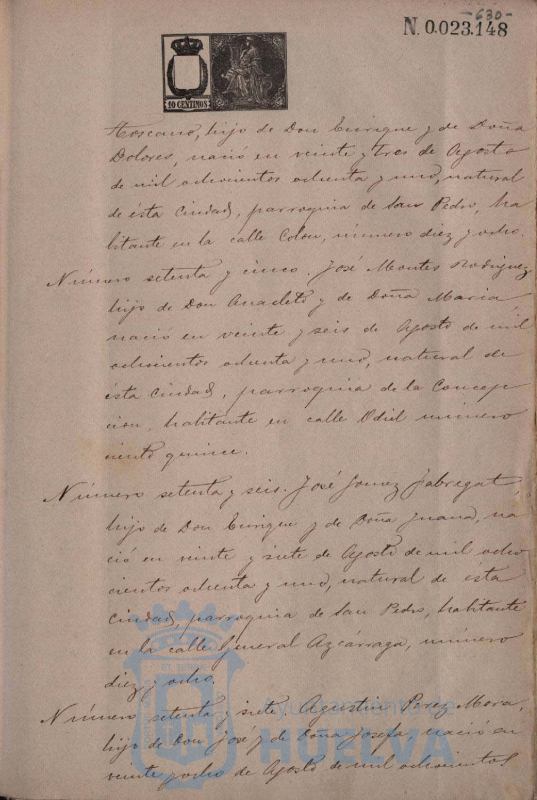 -630-
N. 0.023.148
10 CENTIMOS
Toscano, hijo de Don Enrique y de Doña
Dolores, nació en veinte y tres de Agosto
de mil ochocientos ochenta y uno, natural
de ésta Ciudad, parroquia de San Pedro, ha
bitante en la calle Colon, número diez y ocho.
Número setenta y cinco. José Montes Rodriguez,
hijo de Don Anacleto y de Doña Maria
nació en veinte y seis de Agosto de mil
ochocientos ochenta y uno, natural de
ésta Ciudad, parroquia de la Concep
cion, habitante en calle Odiel número
ciento quince.
Número setenta y seis. José Gomez Fabregat
hijo de Don Enrique y de Doña Juana, na
ció en veinte y siete de Agosto de mil ocho
cientos ochenta y uno, natural de esta
Ciudad, parroquia de San Pedro, habitante
en la calle General Azcárraga, número
diez y ocho.
Número setenta y siete. Agustin Perez Mora,
hijo de Don José y de Doña Josefa, nació en
veinte y ocho de Agosto de mil ochocientos
Ayuntamiento de
HUELVA